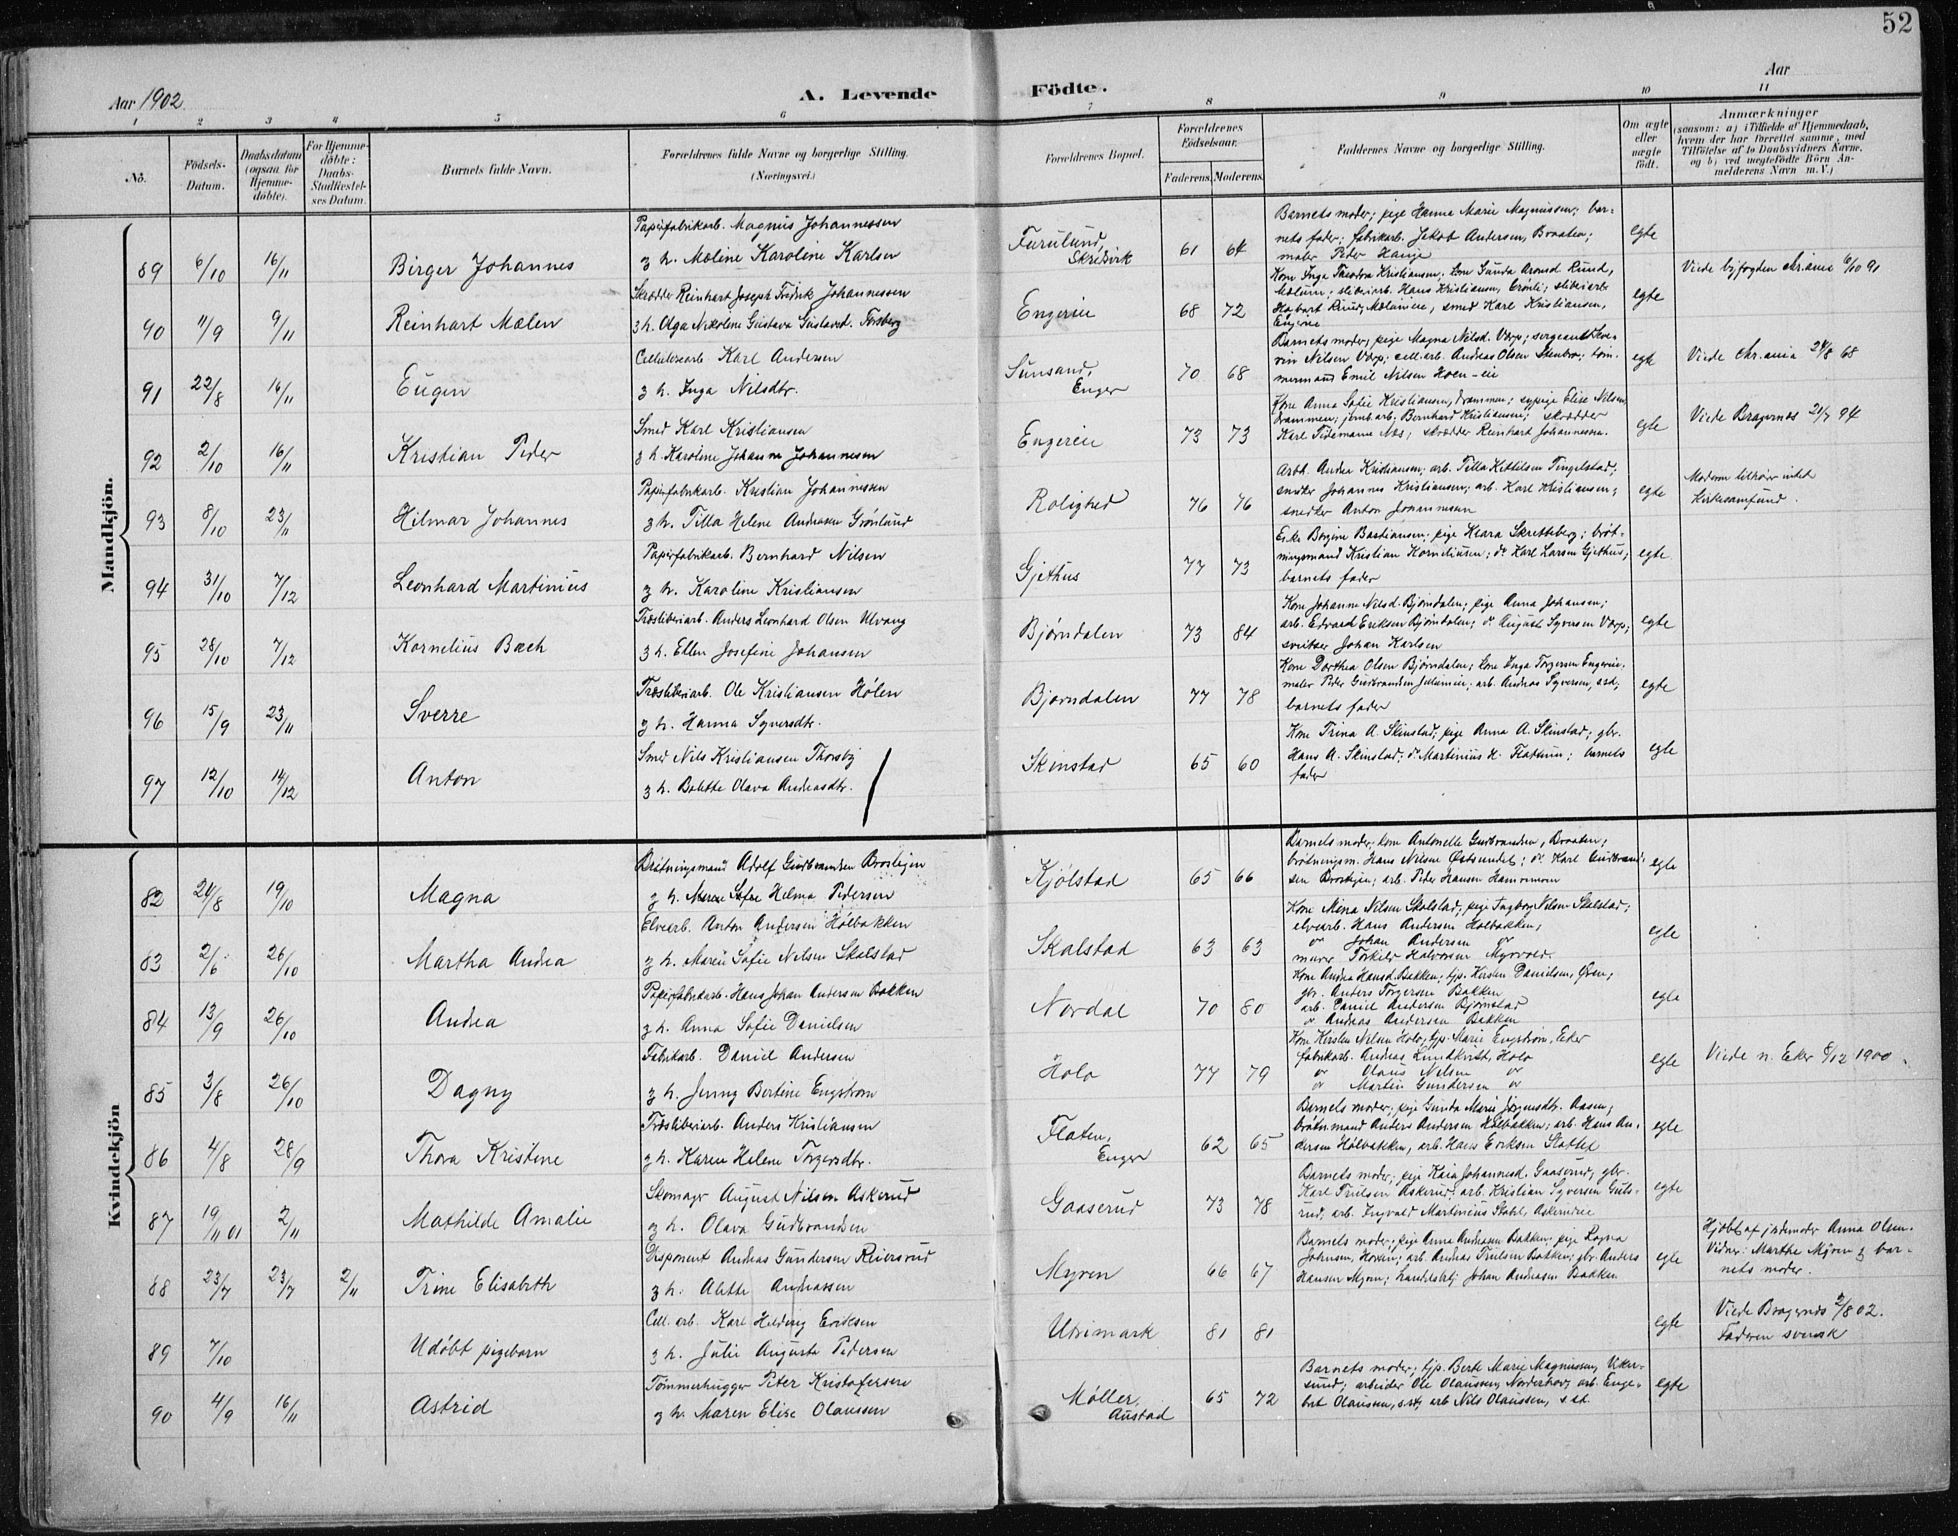 52
Aar 1902
A. Levende
Födte.
Aar
1 2 3 4 5 6 7 8 9 10 11
No.
Födsels-
Datum.
Daabsdatum
(ogsaa for
Hjemme-
döbte).
For Hjemme-
döbte:
Daabs-
Stadfæstel-
ses Datum.
Barnets fulde Navn.
Forældrenes fulde Navne og borgerlige Stilling.
(Næringsvei.)
Forældrenes Bopæl.
Forældrenes
Födselsaar.
Faderens. Moderens.
Faddernes Navne og borgerlige Stilling.
Om ægte
eller
uægte
födt.
Anmærkninger
(saasom: a) i Tilfælde af Hjemmedaab,
hvem der har forrettet samme, med
Tilföielse af to Daabsvidners Navne,
og b) ved uegtefödte Börn An-
melderens Navn m. V.)
Mandkjön.
89 6/10 16/11 Birger Johannes
Papirfabrikarb. Magnus Johannessen
g h. Mæline Karoline Karlsen
Furulund,
Skredsvik
61 64
Barnets moder; pige Hanna Marie Magnussen; bar-
nets fader; fabrikarb. Jakob Andersen, Braaten;
maler Peder Hauge
egte
Viede byfogden Kr.ania 6/10 91
90 11/9 9/11 Reinhart Mælen
Skrædder Reinhart Joseph Fredrik Johannessen
g h. Olga Nikoline Gustava Gustavsd. Forsberg
Engereie
68 72
Kone Inga Theodora Kristiansen; kone Gunda Aronsd. Ruud,
Mælum; sliberiarb. Hans Kristiansen, Grønli; sliberiarb.
Habart Ruud, Mælumeie, smed Karl Kristiansen,
Engerie
egte
91 22/8 16/11 Eugen
Cellulosearb. Karl Andersen
g h. Inga Nilsdtr.
Sunsand,
Enger
70 68
Barnets moder; pige Magna Nilsd. Vorp; sergeant Seve-
rin Nilsen Vorp; cell.arb. Andreas Olsen Stenbro; tøm-
mermand Emil Nilsen Hoen-eie
egte
Viede Kr.ania 24/8 68
92 2/10 16/11 Kristian Peder
Smed Karl Kristiansen
g h. Karoline Johanne Johannesen
Engereie
73 73
Kone Anna Sofie Kristiansen, Drammen; sypige Elise Nilsen,
Drammen; jernb.arb. Bernhard Kristiansen; skrædder
Karl Tidemann Næs; skrædder Reinhart Johannessen.
egte
Viede Bragernæs 21/7 94
93 8/10 23/11 Hilmar Johannes
Papirfabrikarb. Kristian Johannessen
g h. Tilla Helene Andreasen Grønlund
Rolighed
76 76
Arbk. Andrea Kristiansen; arb. Tilla Kittilsen Tingelstad;
snedker Johannes Kristiansen; arb. Karl Kristiansen;
snedker Anton Johannesen
egte
Moderen tilhører intet
kirkesamfund.
94 31/10 7/12 Leonhard Martinius
Papirfabrikarb. Bernhard Nilsen
g h. Karoline Kristiansen
Gjethus
77 73
Enke Borgine Bastiansen; pige Klara Skretteberg; brøt-
ningsmand Kristian Korneliusen; do Karl Larsen Gjethus;
barnets fader
egte
95 28/10 7/12 Kornelius Bach
Træsliberiarb. Anders Leonhard Olsen Ulvang
g h. Ellen Josefine Johansen
Bjørndalen
73 84
Kone Johanne Nilsd. Bjørndalen; pige Anna Johansen;
arb. Edvard Eriksen Bjørndalen; do August Syversen Vorp;
sveitser Johan Karlsen
egte
96 15/9 23/11 Sverre
Træsliberiarb. Ole Kristiansen Hølen
g h. Hanna Syversdtr.
Bjørndalen
77 78
Kone Dorthea Olsen Bjørndalen; kone Inga Torgersen Engereie;
maler Peder Gudbrandsen Julumeie; arb. Andreas Syversen, ssd;
barnets fader
egte
97 12/10 14/12 Anton
Smed Nils Kristiansen Thorsby
g h. Bolette Olava Andreasdtr.
Skinstad
65 60
Kone Trina A. Skinstad, pige Anna A. Skinstad; gbr.
Hans A. Skinstad; do Martinius H. Flattum; barnets
fader
egte
Kvindekjön
82 24/8 19/10 Magna
Brøtningsmand Adolf Gudbrandsen Brostigen
g h. Maren Sofie Helma Pedersen
Kjølstad
65 66
Barnets moder; kone Antonette Gudbrandsen, Braaten;
brøtningsm. Hans Nilsen Østsundet; do Karl Gudbrand-
sen Brostigen; arb. Peder Hansen Hamremoen
egte
83 2/6 26/10 Martha Andrea
Elvearb. Anton Andersen Hølbakken
g h. Maren Sofie Nilsen Skalstad
Skalstad
63 63
Kone Mina Nilsen Skalstad; pige Ingborg Nilsen Skalstad;
elvearb. Hans Andersen Hølbakken;
" Johan Andersen "
murer Torkild Halvorsen Myrvold.
egte
84 13/9 26/10 Andrea
Papirfabrikarb. Hans Johan Andersen Bakken
g h. Anna Sofie Danielsen
Nordal
70 80
Kone Andrea Hansd. Bakken; tjp. Kirsten Danielsen, Øren;
gbr. Anders Torgersen Bakken
arb. Daniel Andersen Bjørnstad
" Andreas Andersen Bakken
egte
85 3/8 26/10 Dagny
Fabrikarb. Daniel Andersen
g h. Jenny Bertine Engstrøm
Holo
77 79
Kone Kirsten Nilsen Holo, tjp. Marie Engstrøm, Eker
fabrikarb. Andreas Lundkvist, Holo
" Olaus Nilsen "
" Martin Gundersen "
egte
Viede n. Eker 8/12 1900.
86 4/8 28/9 Thora Kristine
Træsliberiarb. Anders Kristiansen
g h. Karen Helene Torgersdtr.
Flaten,
Enger
62 65
Barnets moder; pige Gunda Marie Jørgensdtr. Aasen;
brøtn.mand Anders Andersen Hølbakken; arb. Hans An-
dersen Hølbakken, arb. Hans Eriksen Slattet
egte
87 19/11 01 2/11 Mathilde Amalie
Skomager August Nilsen Askerud
g h. Olava Gudbrandsen
Gaaserud
73 78
Barnets moder; pige Kaia Johannesd. Gaaserud; gbr.
Karl Trulsen Askerud; arb. Kristian Syversen Guls-
rud; arb. Ingvald Martinius Stahl, Askerudeie
egte
88 23/7 23/7 2/11 Trine Elisabeth
Disponent Andreas Gundersen Reiersrud
g h. Alette Andreassen
Myren
66 67
Barnets moder; pige Anna Andreasen Bakken; pige Ragna
Johnsen, Hoven; arb. Andreas Trulsen Bakken; gbr. Anders
Hansen Myren; handelsbtj. Johan Andreasen Bakken
egte
Hjdbt af jordmoder Anna Olsen.
Vidner: Marthe Myren g bar-
nets moder.
89 7/10 Udøbt pigebarn
Cell. arb. Karl Helding Eriksen
g h. Julie Augusta Pedersen
Utsimark
81 81
egte
Viede Bragernæs 2/8 02.
Faderen svensk
90 4/9 16/11 Astrid
Tømmerhugger Peter Kristofersen
g h. Maren Elise Olaussen
Møller,
Austad
65 72
Barnets moder; tjp. Berte Marie Magnussen, Viker-
sund; arbeider Ole Olaussen, Norderhov; arb. Enge-
bret Olaussen, s.st; arb Nils Olaussen, s.st.
egte